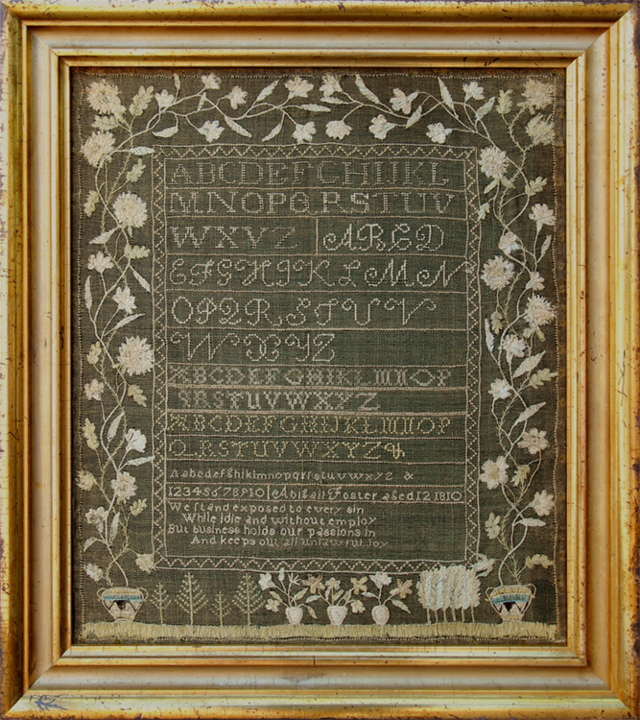 ABCDEFGHIJKL
MNOPQRSTUV
WXYZ ABCD
EFGHIJKLMN
OPQRSTUV
WXYZ
ABCDEFGHIKLMNOP
SRSTUVWXYZ
ABCDEFGHIJKLMNOP
Q.RSTUVWXYZ&
Aabcdefghiklmnopqrſstuvwxyz &
12345678910 Abigail Foster aged 12 1810
We ſtand exposed to every sin
While idle and without employ
But business holds our passions in
And keeps out all unlawful Joy